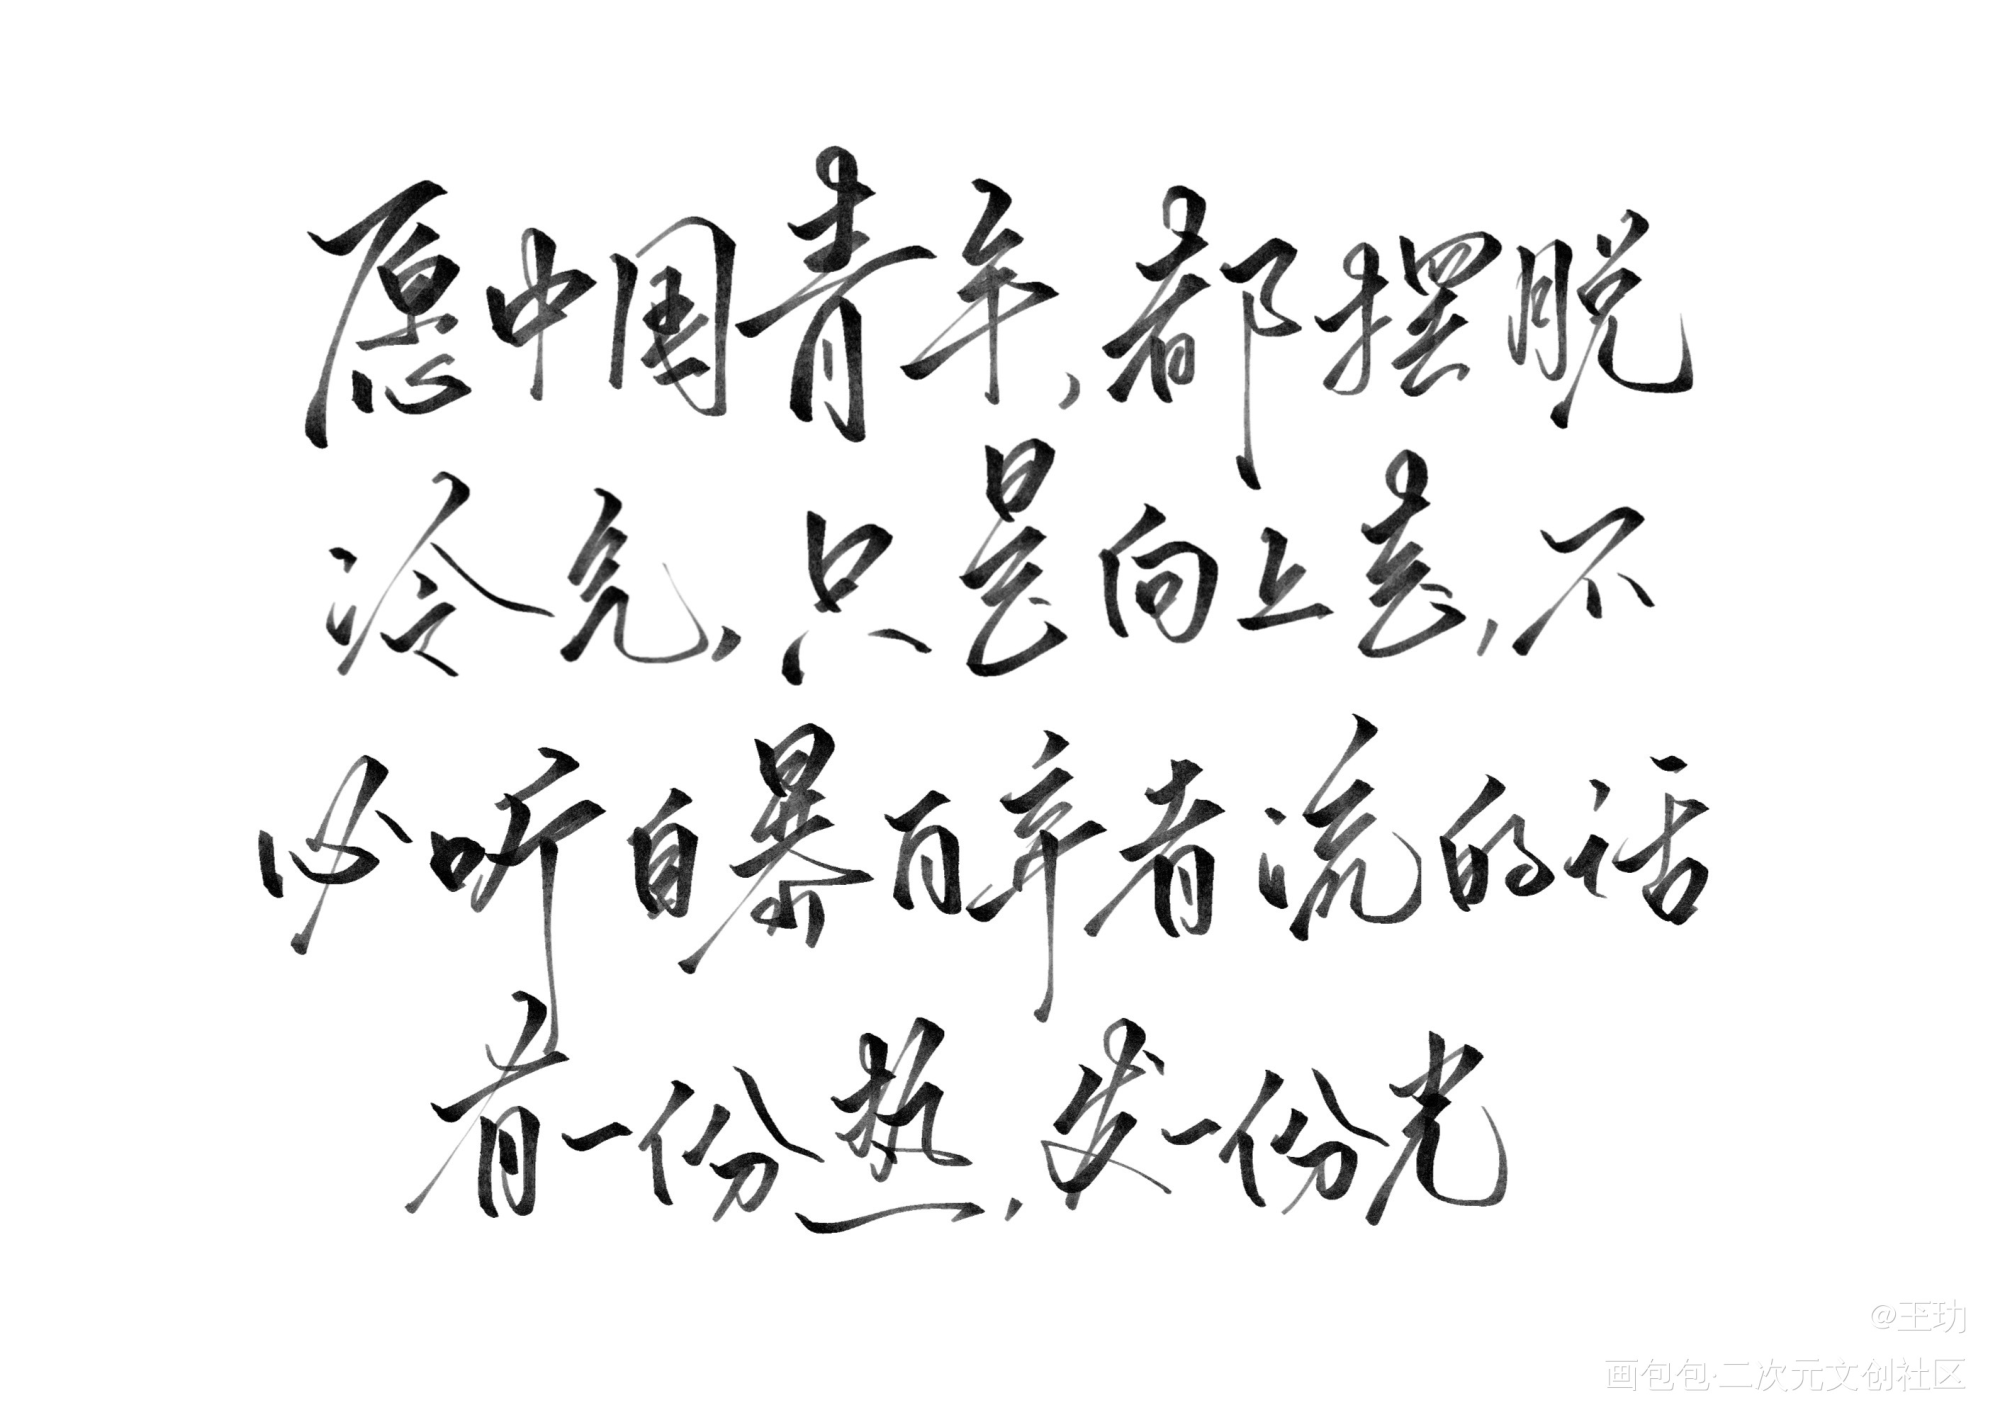 愿中国青年,都摆脱
冷气,只是向上走,不
必听自暴自弃者流的话
有一份热,发一份光
@王玏
画包包·二次元文创社区